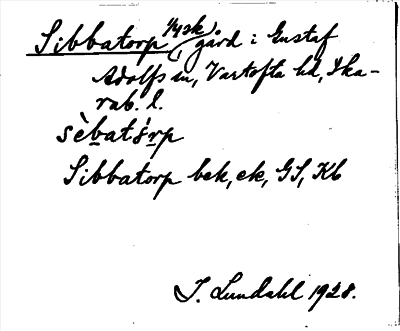 Sibbatorp 1/4 sk, gård i Gustaf
Adolfs sn, Vartofta hd, Ska-
rab. l.
sèbatɔ́rp
Sibbatorp bek, ek, GS, Kb
I. Lundahl 1928.